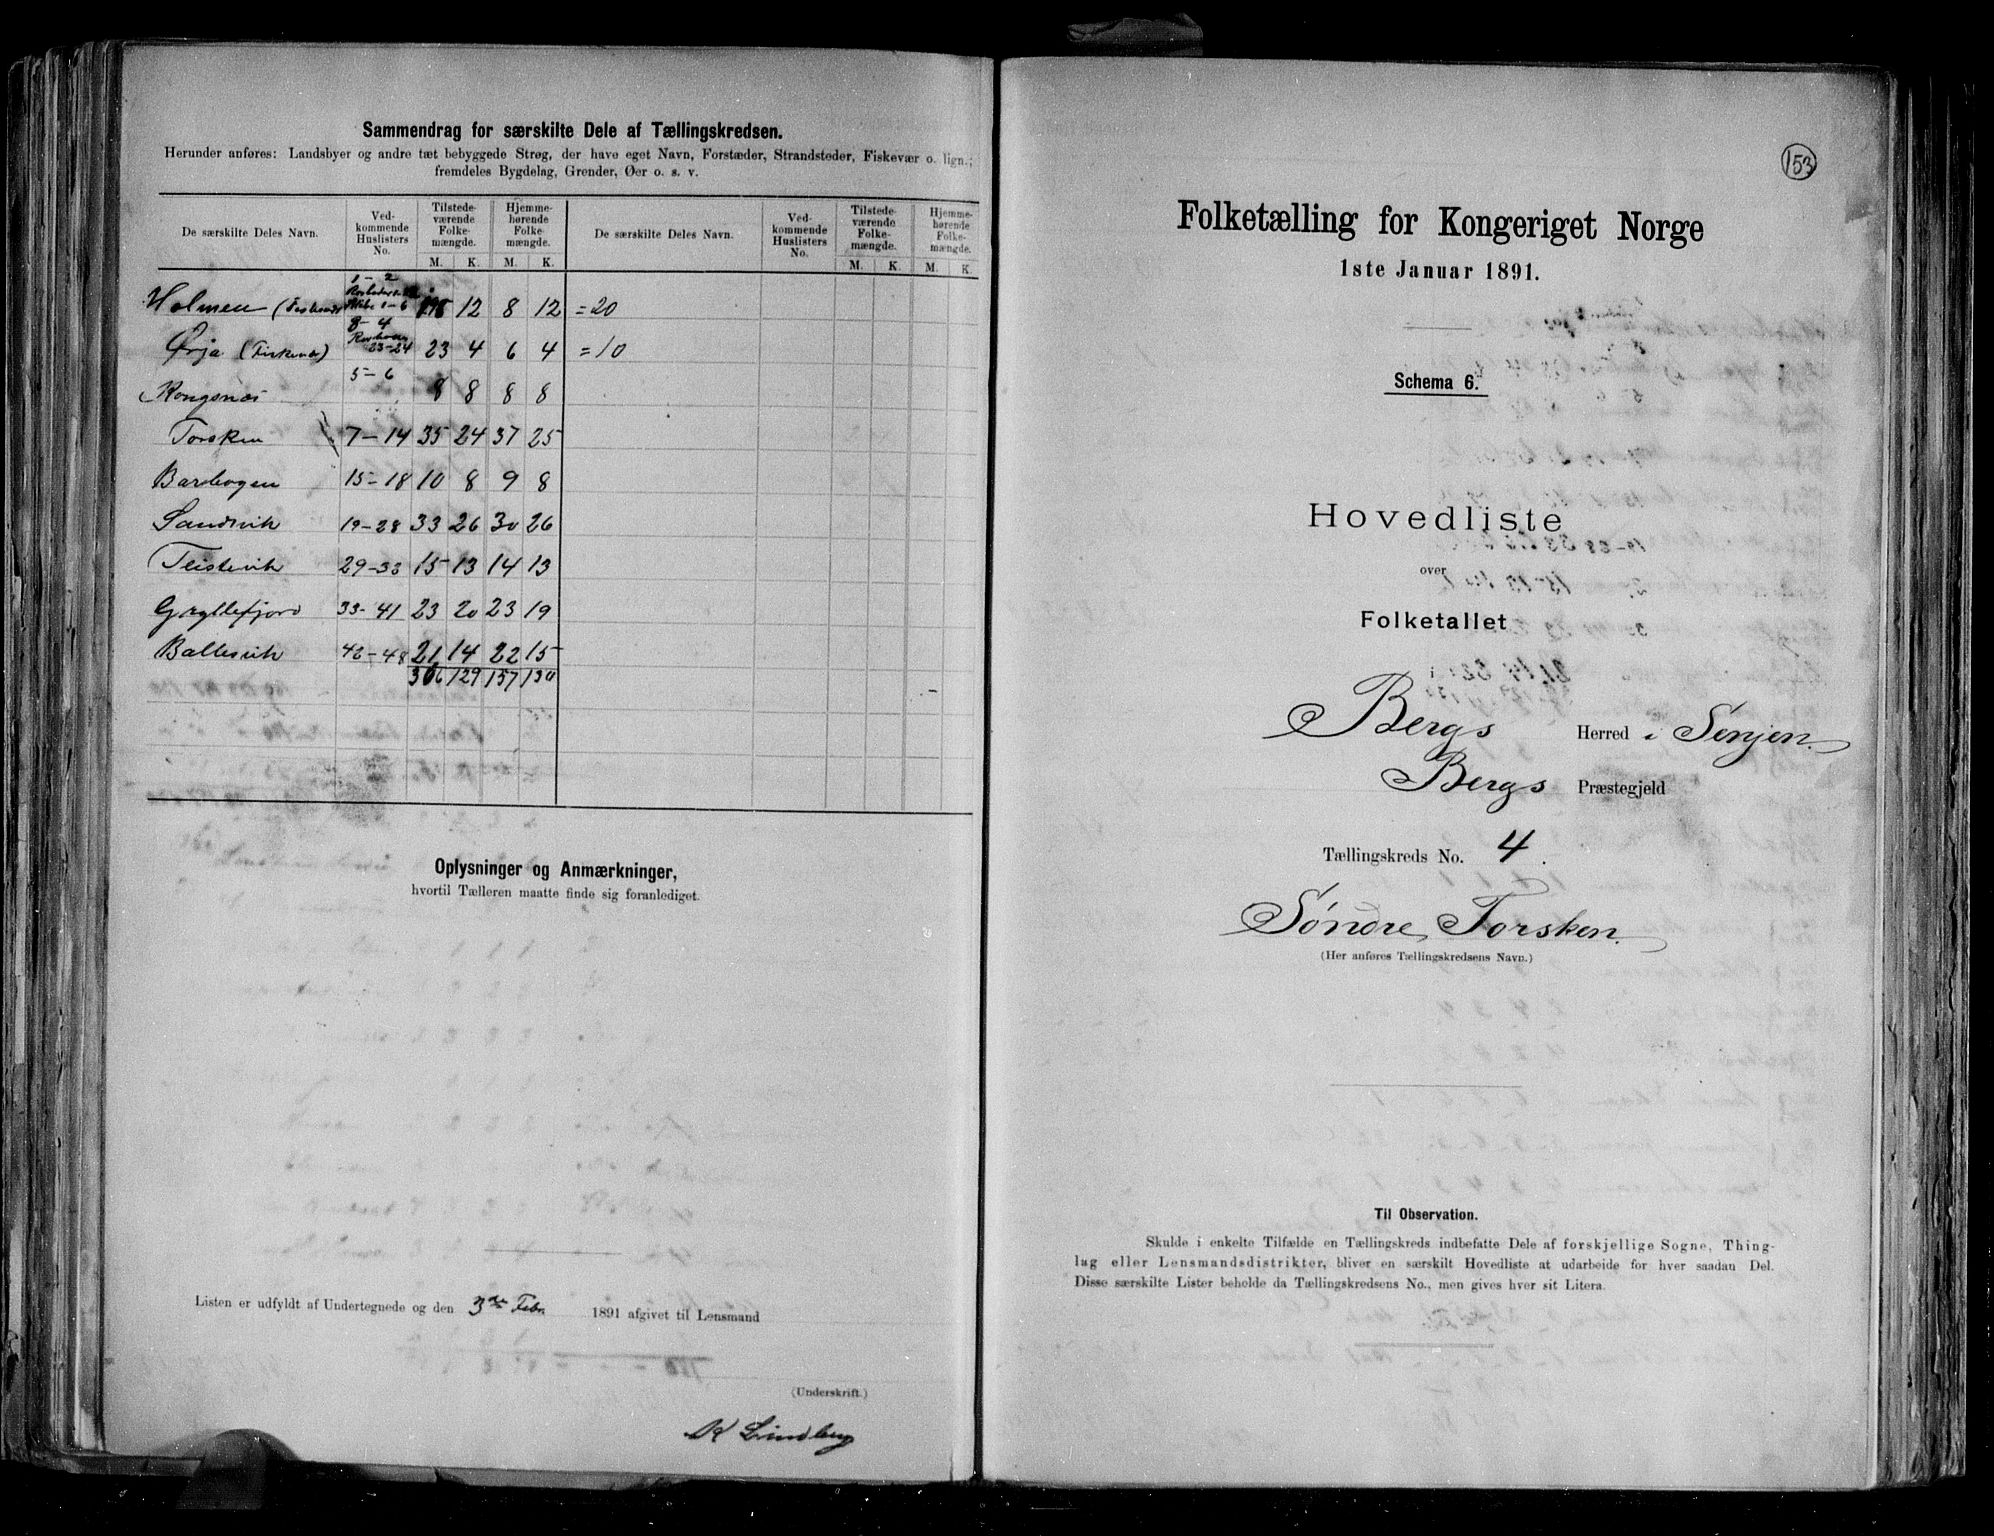 Sammendrag for særskilte Dele af Tællingskredsen.
Herunder anføres: Landsbyer og andre tæt bebyggede Strøg, der have eget Navn, Forstæder, Strandsteder, Fiskevær o. lign.;
fremdeles Bygdelag, Grender, Øer o. s. v.
De særskilte Deles Navn. Ved-kommende Huslisters No. Tilstede-værende Folke-mængde. Hjemme-hørende Folke-mængde. De særskilte Deles Navn. Ved-kommende Huslisters No. Tilstede-værende Folke-mængde. Hjemme-hørende Folke-mængde.
M. K. M. K. M. K. M. K.
1-2
Holmen 1-6 12 8 12 =20
3-4
Ørja (Fiskevær) 23-24 23 4 6 4 =10
Kongsnæs 5-6 8 8 8 8
Torsken 7-14 35 24 37 25
Barbogen 15-18 10 8 9 8
Sandvik 19-28 33 26 30 26
Teistevik 29-33 15 13 14 13
Gryllefjord 33-41 23 20 23 19
Ballesvik 42-48 21 14 22 15
306 129 157 130
Oplysninger og Anmærkninger,
hvortil Tælleren maatte finde sig foranlediget.
Listen er udfyldt af Undertegnede og den 3die Febr. 1891 afgivet til Lensmand
(Underskrift.)
K Lindberg
153
Folketælling for Kongeriget Norge
1ste Januar 1891.
Schema 6.
Hovedliste
over
Folketallet
Bergs Herred i Senjen.
Bergs Præstegjeld
Tællingskreds No. 4.
Søndre Torsken.
(Her anføres Tællingskredsens Navn.)
Til Observation.
Skulde i enkelte Tilfælde en Tællingskreds indbefatte Dele af forskjellige Sogne, Thing-
lag eller Lensmandsdistrikter, bliver en særskilt Hovedliste at udarbeide for hver saadan Del.
Disse særskilte Lister beholde da Tællingskredsens No., men gives hver sit Litera.